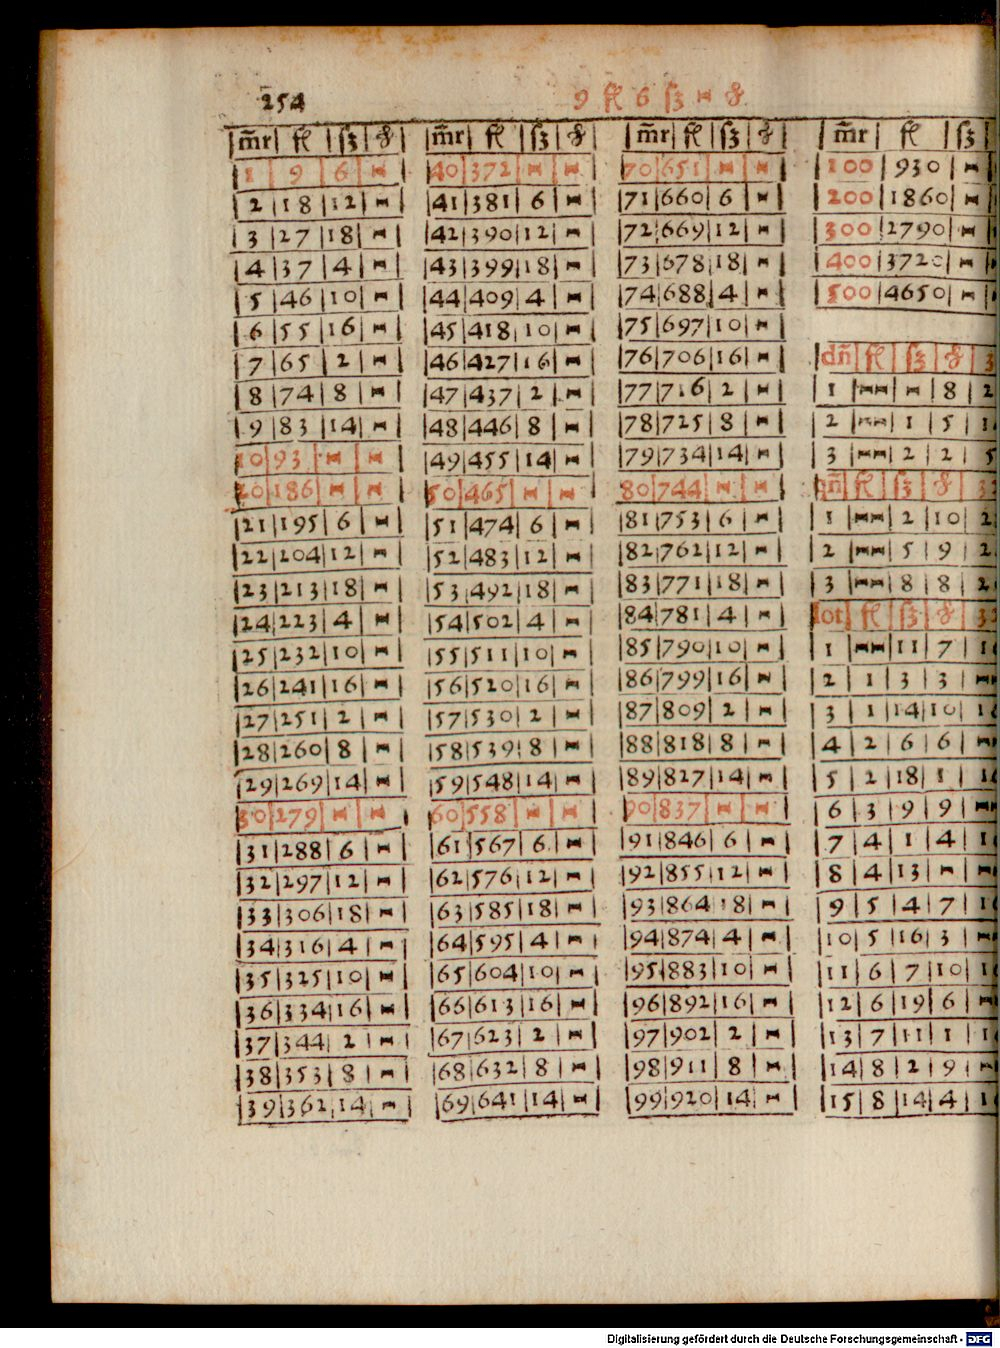 254
9 fl 6 ß - ₰
m̃r fl ß ₰
1 9 6 -
2 18 12 -
3 27 18 -
4 37 4 -
5 46 10 -
6 55 16 -
7 65 2 -
8 74 8 -
9 83 14 -
10 93 - -
20 186 - -
21 195 6 -
22 204 12 -
23 213 18 -
24 223 4 -
25 232 10 -
26 241 16 -
27 251 2 -
28 260 8 -
29 269 14 -
30 279 - -
31 288 6 -
32 297 12 -
33 306 18 -
34 316 4 -
35 325 10 -
36 334 16 -
37 344 2 -
38 353 8 -
39 362 14 -
m̃r fl ß ₰
40 372 - -
41 381 6 -
42 390 12 -
43 399 18 -
44 409 4 -
45 418 10 -
46 427 16 -
47 437 2 -
48 446 8 -
49 455 14 -
50 465 - -
51 474 6 -
52 483 12 -
53 492 18 -
54 502 4 -
55 511 10 -
56 520 16 -
57 530 2 -
58 539 8 -
59 548 14 -
60 558 - -
61 567 6 -
62 576 12 -
63 585 18 -
64 595 4 -
65 604 10 -
66 613 16 -
67 623 2 -
68 632 8 -
69 641 14 -
m̃r fl ß ₰
70 651 - -
71 660 6 -
72 669 12 -
73 678 18 -
74 688 4 -
75 697 10 -
76 706 16 -
77 716 2 -
78 725 8 -
79 734 14 -
80 744 - -
81 753 6 -
82 762 12 -
83 771 18 -
84 781 4 -
85 790 10 -
86 799 16 -
87 809 2 -
88 818 8 -
89 827 14 -
90 837 - -
91 846 6 -
92 855 12 -
93 864 18 -
94 874 4 -
95 883 10 -
96 892 16 -
97 902 2 -
98 911 8 -
99 920 14 -
m̃r fl ß
100 930 -
200 1860 -
300 2790 -
400 3720 -
500 4650 -
dñ fl ß ₰
1 -- - 8
2 -- 1 5
3 -- 2 2
qñ fl ß ₰
1 -- 2 10
2 -- 5 9
3 -- 8 8
lot fl ß ₰
1 -- 11 7
2 1 3 3
3 1 14 10
4 2 6 6
5 2 18 1
6 3 9 9
7 4 1 4
8 4 13 -
9 5 4 7
10 5 16 3
11 6 7 10
12 6 19 6
13 7 11 1
14 8 2 9
15 8 14 4
Digitalisierung gefördert durch die Deutsche Forschungsgemeinschaft - DFG